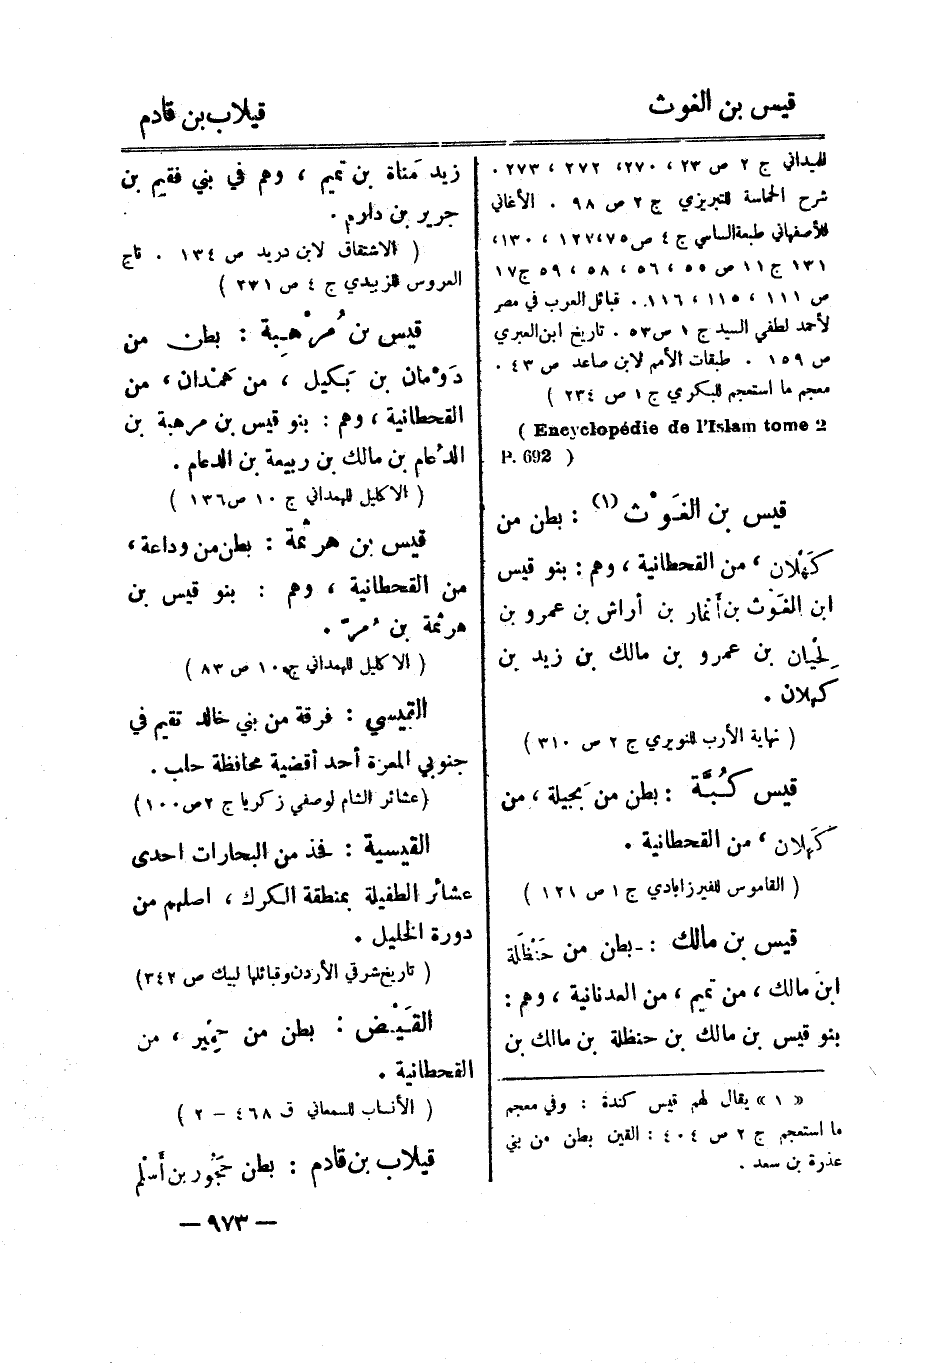 قيس بن الغوث
قيلاب بن قادم
للميداني ج ٢ ص ٢٣ ، ٢٧٠، ٢٧٢ ، ٢٧٣ .
شرح الحماسة للتبريزي ج ٢ ص ٩٨ . الأغاني
للأصفهاني طبعة الساسي ج ٤ ص ٧٥، ١٢٧ ، ١٣٠،
١٣١ ج ١١ ص ٥٥ ، ٥٦ ، ٥٨ ، ٥٩ ج ١٧
ص ١١١ ، ١١٥ ، ١١٦ . قبائل العرب في مصر
لأحمد لطفي السيد ج ١ ص ٥٣ . تاريخ ابن العبري
ص ١٥٩ . طبقات الأمم لابن صاعد ص ٤٣ .
معجم ما استعجم للبكري ج ١ ص ٢٣٤ )
( Encyclopédie de l'Islam tome 2
P. 692 )
قيس بن الغَوْث (١) : بطن من
كَهْلان ، من القحطانية ، وهم : بنو قيس
ابن الغَوْث بن أَنمار بن أراش بن عمرو بن
لِحْيان بن عمرو بن مالك بن زيد بن
كهلان .
( نهاية الأرب للنويري ج ٢ ص ٣١٠ )
قيس كُبَّة : بطن من بَجيلة ، من
كَهْلان ، من القحطانية .
( القاموس للفيرزابادي ج ١ ص ١٢١ )
قيس بن مالك : بطن من حَنْظلة
ابن مالك ، من تميم ، من العدنانية ، وهم :
بنو قيس بن مالك بن حنظلة بن مالك بن
« ١ » يقال لهم قيس كندة : وفي معجم
ما استعجم ج ٢ ص ٤٠٤ : القين بطن من بني
عذرة بن سعد .
زيد مَناة بن تميم ، وهم في بني فقيم بن
جرير بن دارم .
( الاشتقاق لابن دريد ص ١٣٤ . تاج
العروس للزبيدي ج ٤ ص ٢٣١ )
قيس بن مُرْهِبة : بطن من
دَوْمان بن بَكيل ، من هَمْدان ، من
القحطانية ، وهم : بنو قيس بن مرهبة بن
الدُعام بن مالك بن ربيعة بن الدعام .
( الاكليل للهمداني ج ١٠ ص ١٣٦ )
قيس بن هرثمة : بطن من وداعة ،
من القحطانية ، وهم : بنو قيس بن
هرثمة بن مُرّ .
( الاكليل للهمداني ج ١٠ ص ٨٣ )
القيسي : فرقة من بني خالد تقيم في
جنوبي المعرة أحد أقضية محافظة حلب .
(عشائر الشام لوصفي زكريا ج ٢ ص ١٠٠)
القيسية : فخذ من البحارات احدى
عشائر الطفيلة بمنطقة الكرك ، اصلهم من
دورة الخليل .
( تاريخ شرقي الأردن وقبائلها لبيك ص ٣٤٢)
القَيْض : بطن من حِمْير ، من
القحطانية .
( الأنساب للسمعاني ق ٤٦٨ – ٢ )
قيلاب بن قادم : بطن حَجُور بن أَسْلم
— ٩٧٣ —